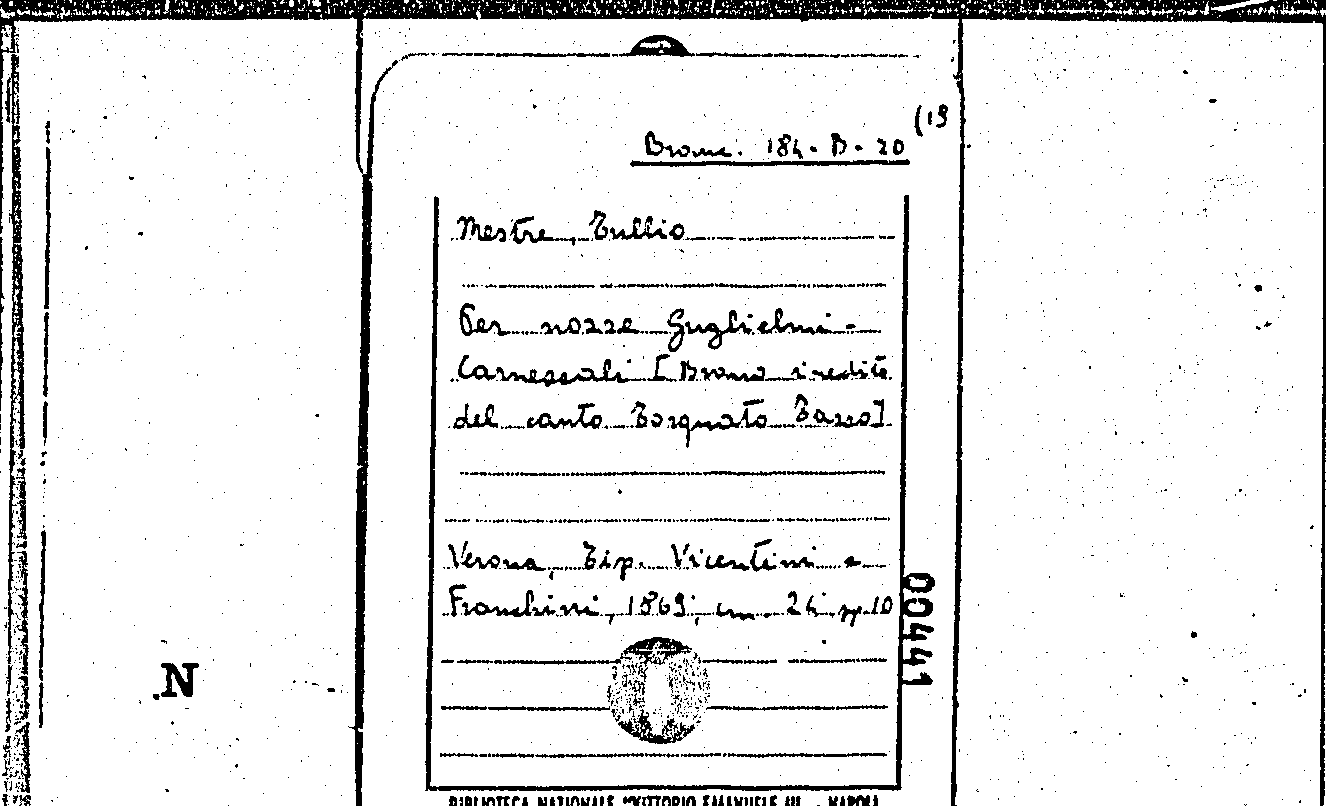 (19
Branc. 184-B-20
Mestre, Tullio
Per nozze Guglielmi-
Carnessali [Brano inedito
del canto Torquato Tasso]
Verona, Tip. Vicentini e
Franchini, 1869; cm. 24 pp. 10
00441
N
BIBLIOTECA NAZIONALE "VITTORIO EMANUELE III" - NAPOLI